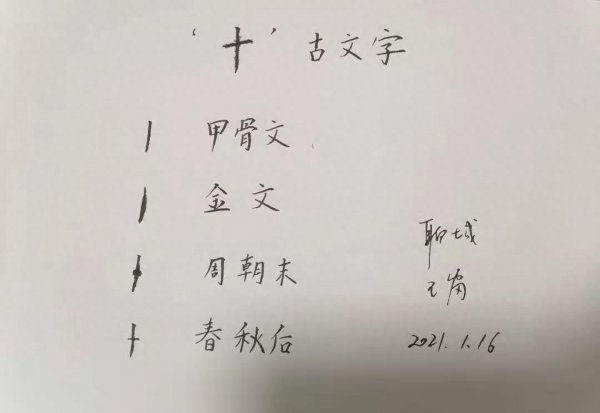 ‘十’古文字
丨 甲骨文
丨 金文
周朝末
十 春秋后
聊城
王
2021.1.16